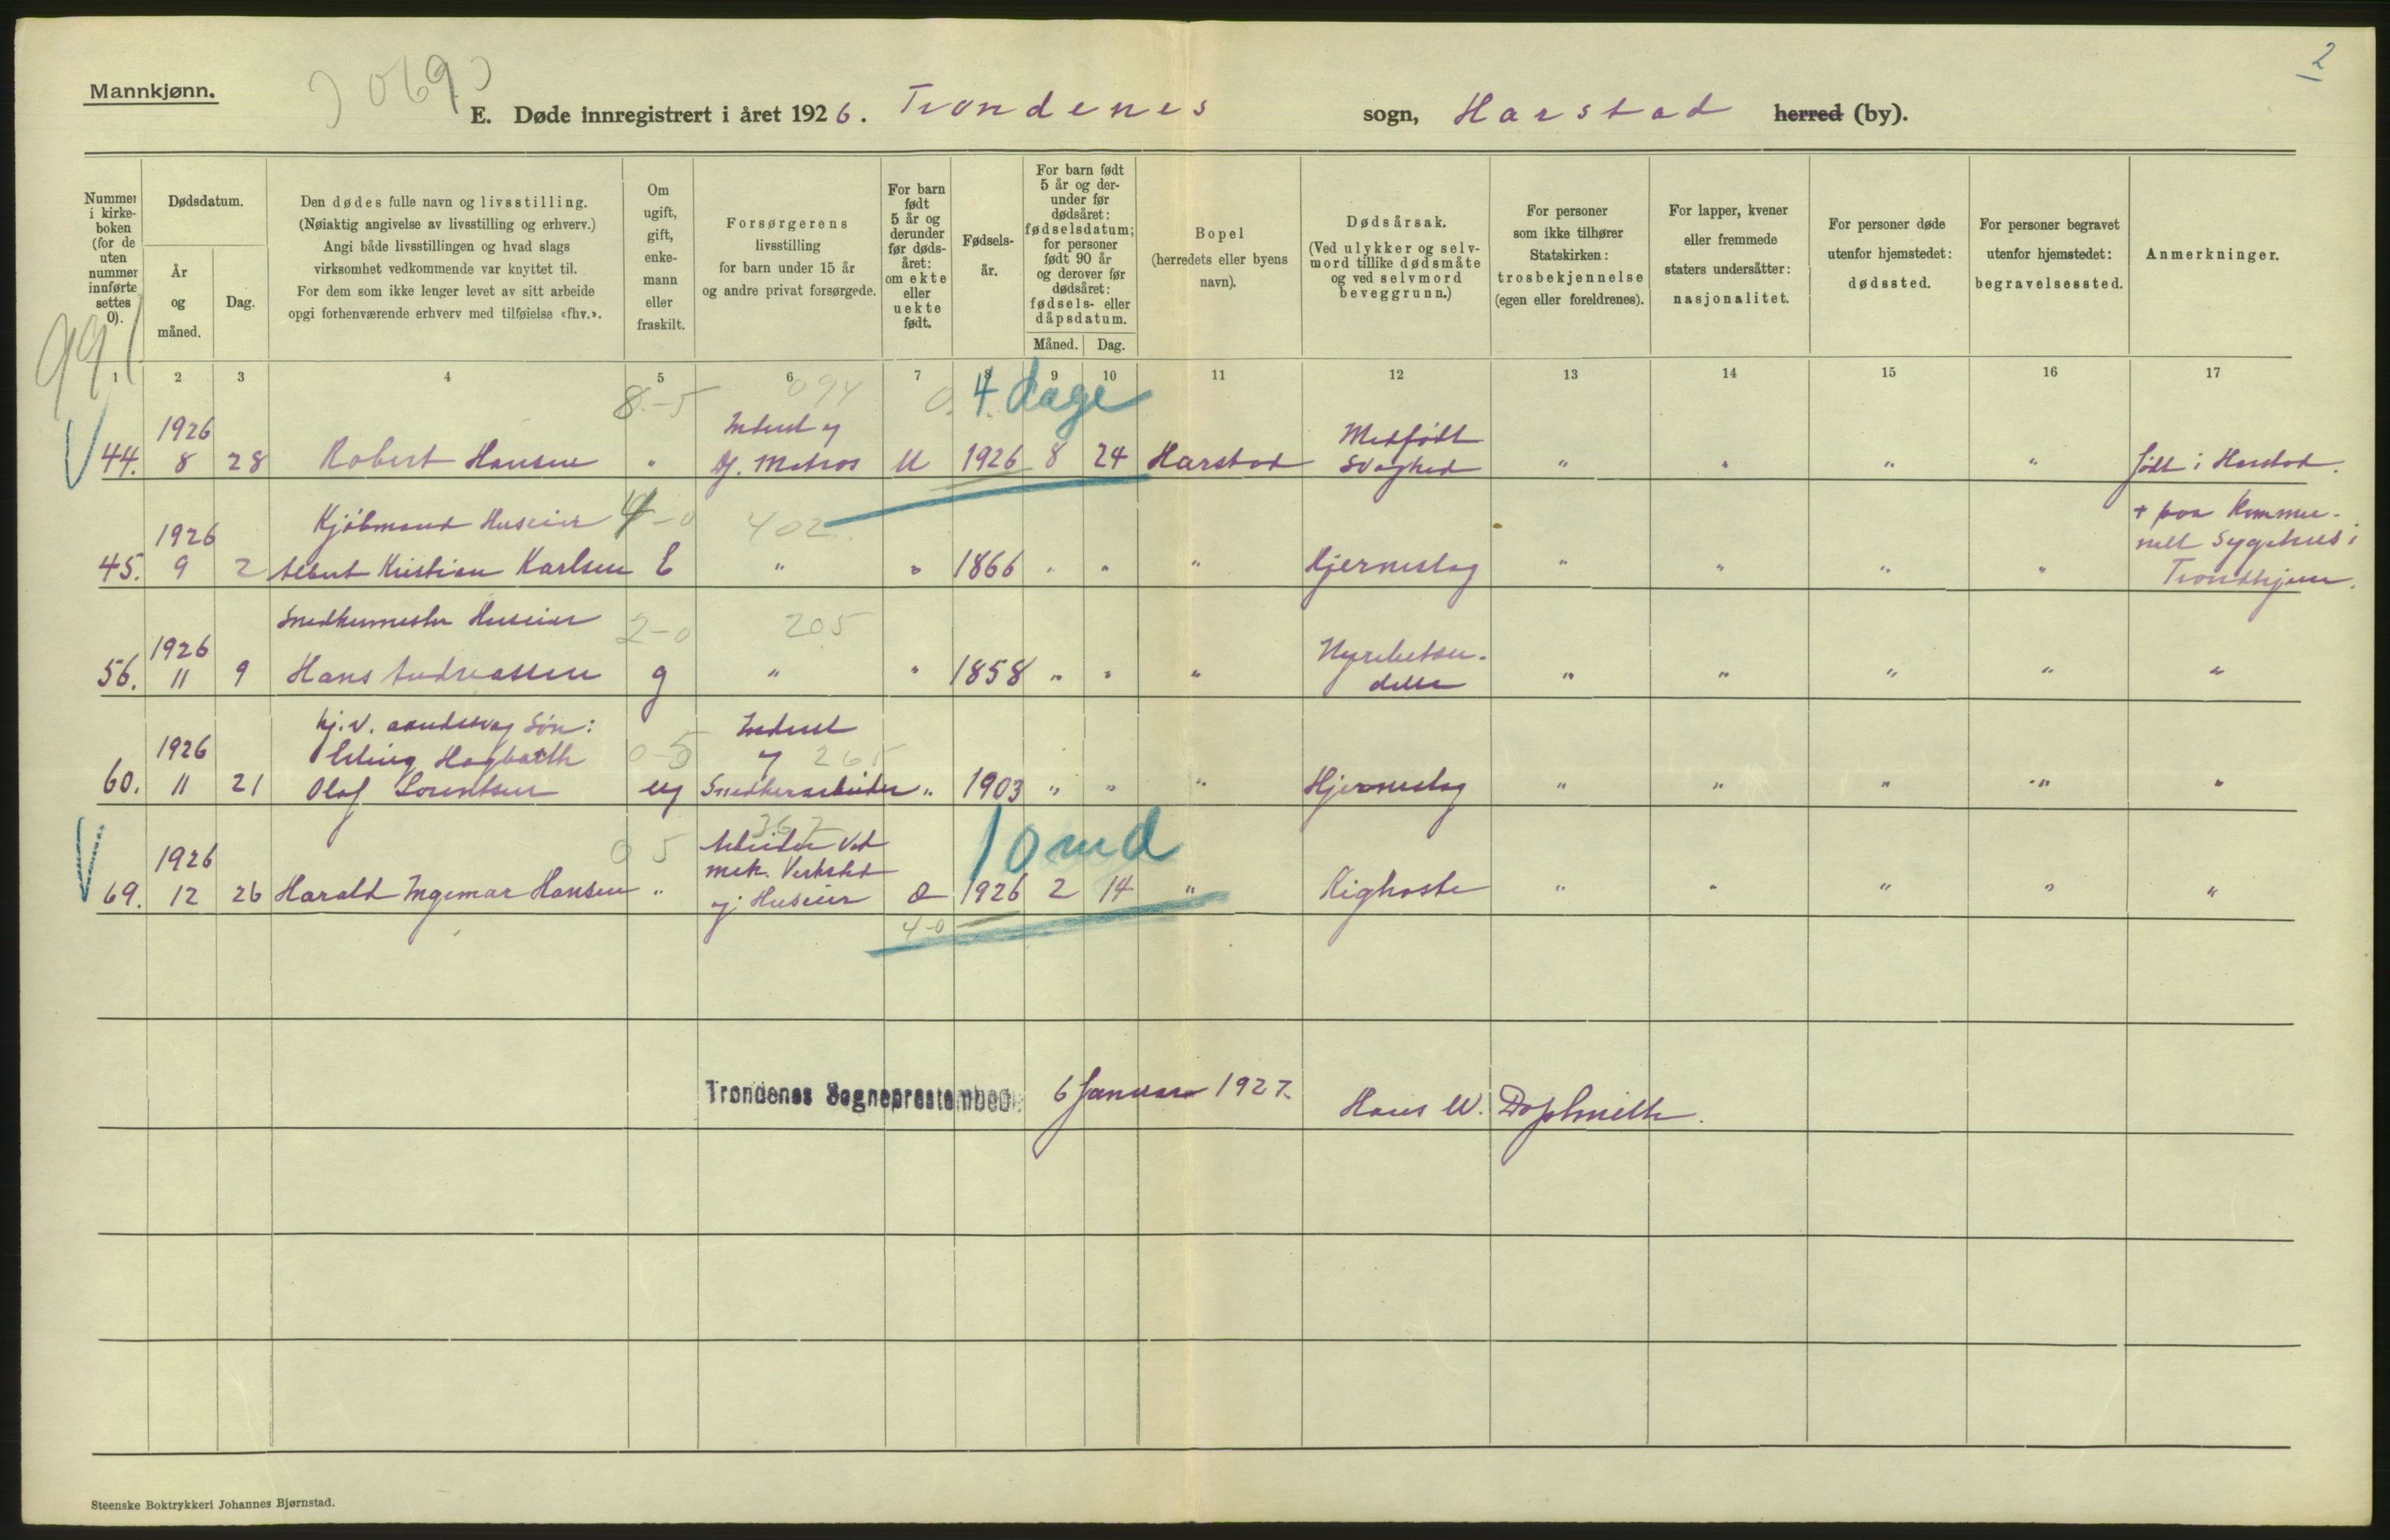 2
Mannkjønn.
E. Døde innregistrert i året 1926. Trondenes sogn, Harstad herred (by).
Nummer i kirkeboken (for de uten nummer innførte settes 0).
Dødsdatum.
År og måned.
Dag.
Den dødes fulle navn og livsstilling.
(Nøiaktig angivelse av livsstilling og erhverv.)
Angi både livsstillingen og hvad slags
virksomhet vedkommende var knyttet til.
For dem som ikke lenger levet av sitt arbeide
opgi forhenværende erhverv med tilføielse «fhv.».
Om ugift, gift, enkemann eller fraskilt.
Forsørgerens
livsstilling
for barn under 15 år
og andre privat forsørgede.
For barn født 5 år og derunder før dødsåret: om ekte eller uekte født.
Fødselsår.
For barn født 5 år og derunder før dødsåret: fødselsdatum; for personer født 90 år og derover før dødsåret: fødsels- eller dåpsdatum.
Måned. Dag.
Bopel
(herredets eller byens
navn).
Dødsårsak.
(Ved ulykker og selvmord tillike dødsmåte og ved selvmord beveggrunn.)
For personer
som ikke tilhører
Statskirken:
trosbekjennelse
(egen eller foreldrenes).
For lapper, kvener
eller fremmede
staters undersåtter:
nasjonalitet.
For personer døde
utenfor hjemstedet:
dødssted.
For personer begravet
utenfor hjemstedet:
begravelsessted.
Anmerkninger.
1 2 3 4 5 6 7 8 9 10 11 12 13 14 15 16 17
8-5 094 4 dage
1926 Medfødt
44. 8 28 Robert Hansen " Matros U 1926 8 24 Harstad Svaghed " " " " født i Harstad.
Kjøbmand Huseier 4-0 402 + paa Kommu-
1926 nelt Sygehus i
45. 9 2 Albert Kristian Karlsen E " " 1866 " " " Hjerneslag " " " " Trondhjem.
Snedkermester Huseier 2-0 205
1926
56. 11 9 Hans Andreassen g " " 1858 " " " " " " " "
hj.v. aandssvag Søn:
1926 Erling Hagbarth 0-5 265
60. 11 21 Olaf Lorentsen ug Snedkerarbeider " 1903 " " " Hjerneslag " " " " "
0 5 367 Arbeider ved 10 md
1926 mek. Verksted
69. 12 26 Harald Ingemar Hansen " og Huseier 1926 2 14 " Kighoste " " " " "
4-0
Trondenes Sogneprestembede 6 Januar 1927.
Hans W.
Steenske Boktrykkeri Johannes Bjørnstad.